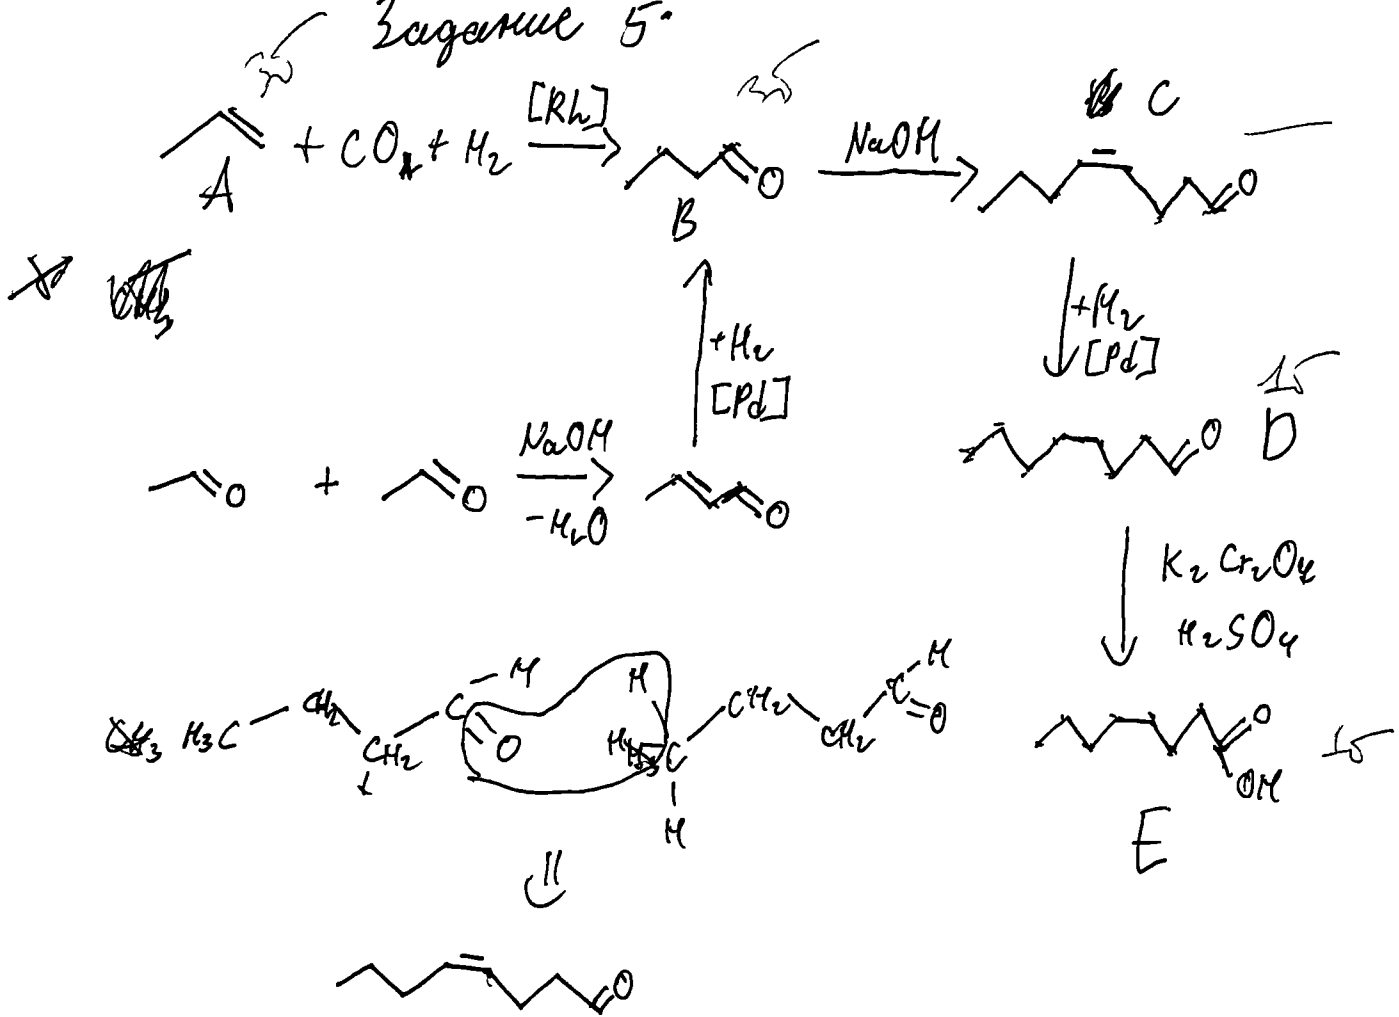 Задание 5.
3б
3б
A + CO + H2 [Rh] B
NaOH
C
O
O
+H2
[Pd]
+H2
[Pd]
1б
D
O
O + O NaOH -H2O O
K2Cr2O4
H2SO4
H3C CH2 CH2 C H O
H C H CH2 CH2 C H O
O
OH
1б
E
O